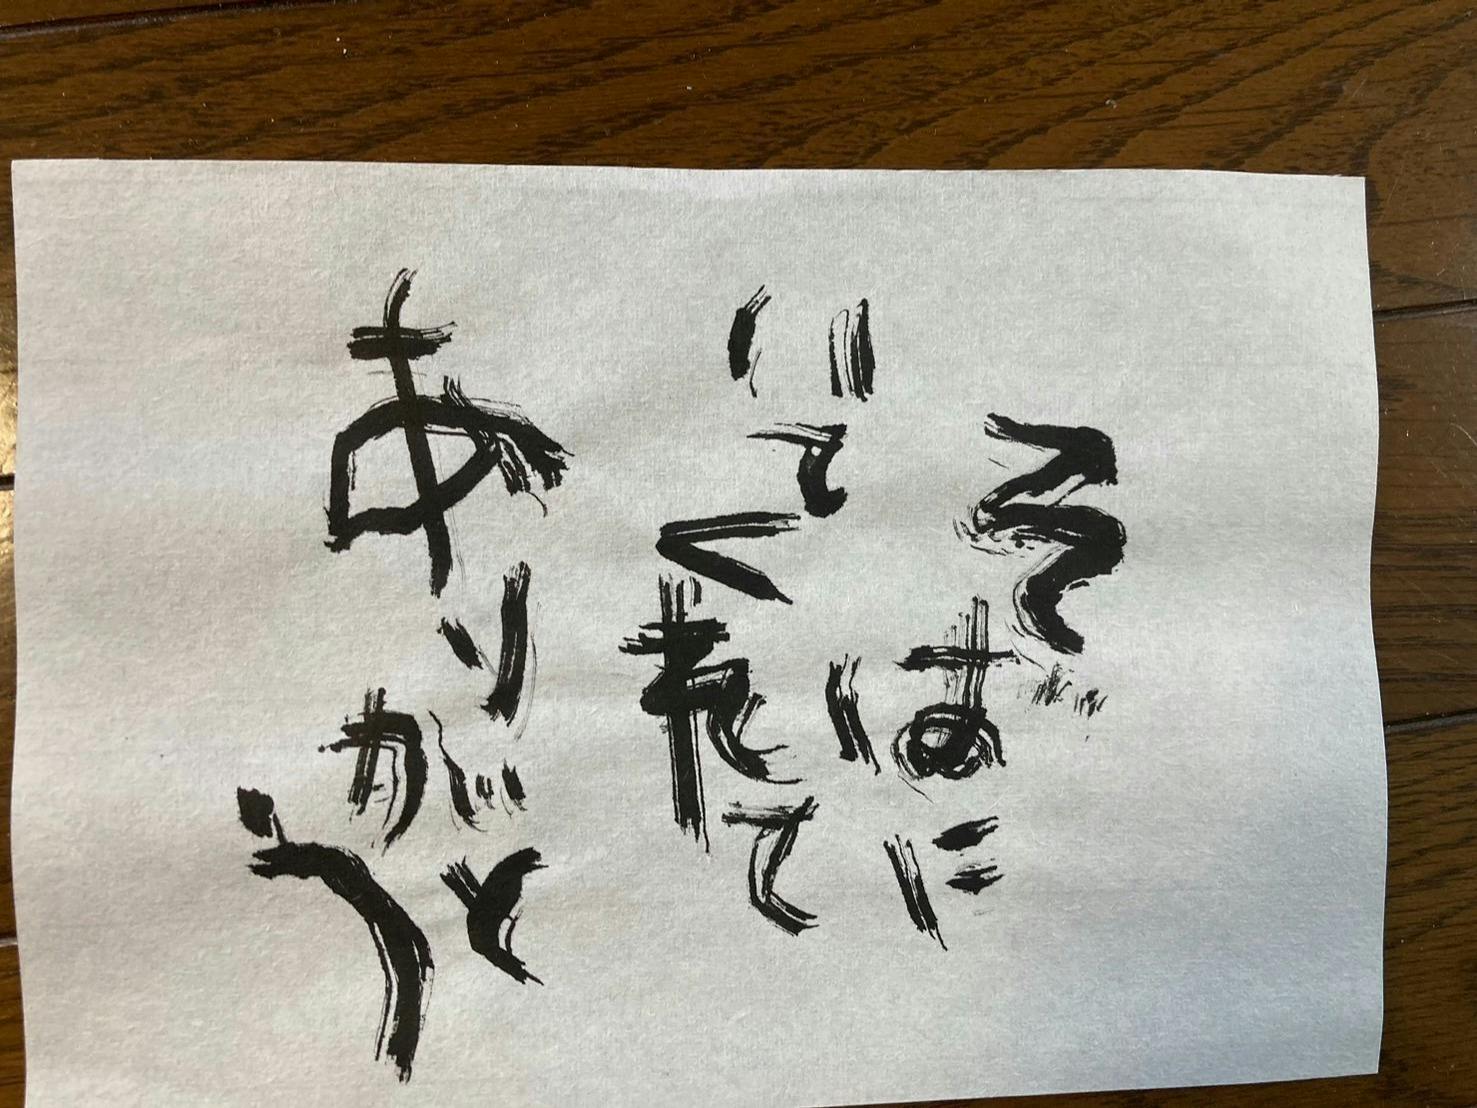 そばに
いてくれて
ありがとう